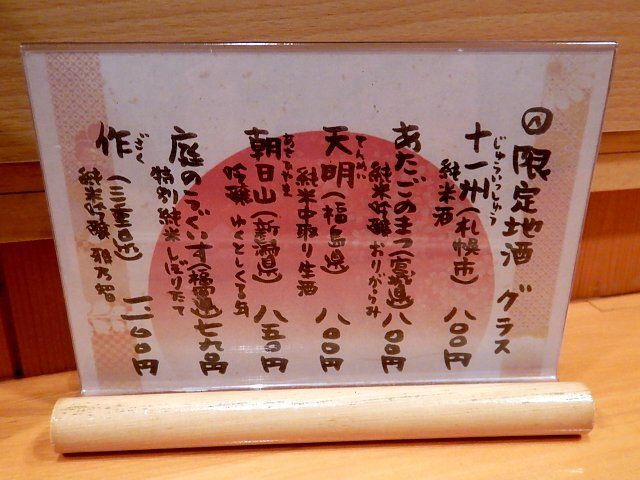 限定地酒 グラス
じゅういっしゅう
十一州(札幌市) 八〇〇円
純米酒
あたごのまつ(宮城県) 八〇〇円
純米吟醸 おりがらみ
てんめい
天明(福島県) 八〇〇円
純米中取り生酒
あさひやま
朝日山(新潟県) 八五〇円
吟醸 ゆくとしくる年
庭のうぐいす(福岡県) 七九〇円
特別純米 しぼりたて
ざく
作(三重県) 一、一〇〇円
純米吟醸 雅乃智